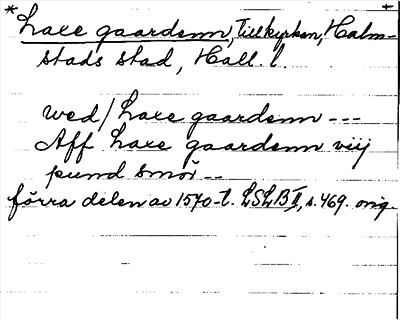 *Laxe gaardenn, Tillkyrkan, Halm-
stads stad, Hall. l.
wed / Laxe gaardenn ---
Aff Laxe gaardenn viij
pund smör --
förra delen av 1570-t. LSLB II, s. 469. orig.